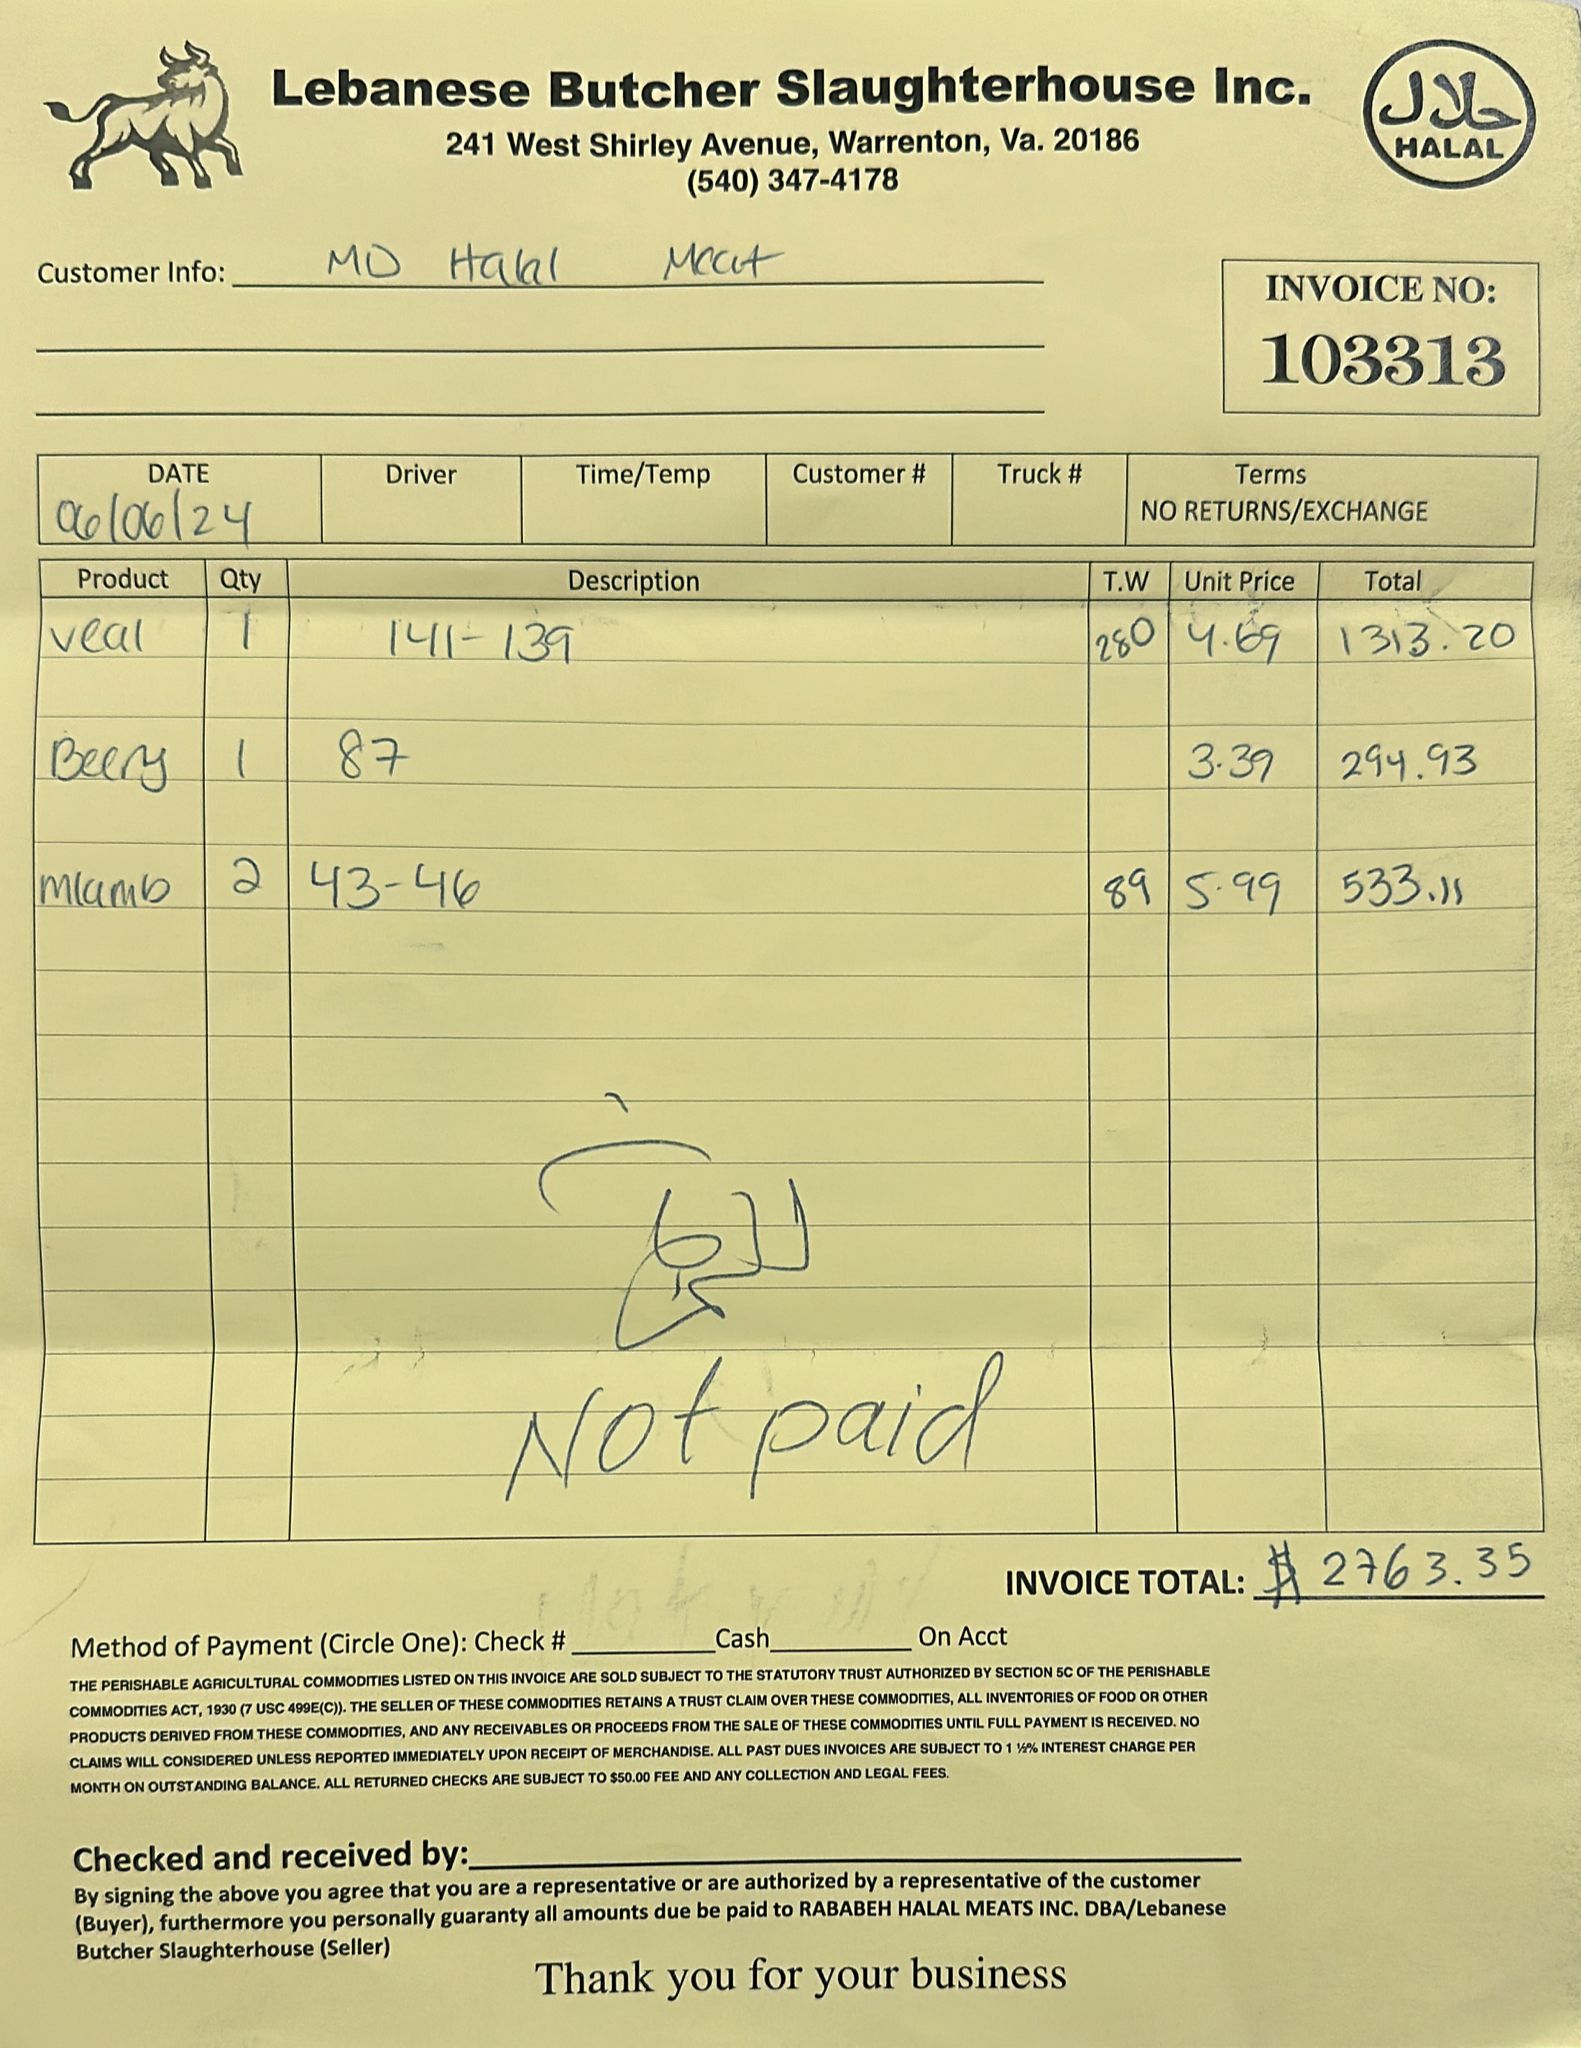 Lebanese Butcher Slaughterhouse Inc.
حلال
HALAL
241 West Shirley Avenue, Warrenton, Va. 20186
(540) 347-4178
Customer Info: MD Halal Meat
INVOICE NO:
103313
DATE Driver Time/Temp Customer # Truck # Terms
06/06/24 NO RETURNS/EXCHANGE
Product Qty Description T.W Unit Price Total
veal 1 141-139 280 4.69 1313.20
1 87 3.39 294.93
mlamb 2 43-46 89 5.99 533.11
Not paid
INVOICE TOTAL: $ 2763.35
Method of Payment (Circle One): Check # Cash On Acct
THE PERISHABLE AGRICULTURAL COMMODITIES LISTED ON THIS INVOICE ARE SOLD SUBJECT TO THE STATUTORY TRUST AUTHORIZED BY SECTION 5C OF THE PERISHABLE
COMMODITIES ACT, 1930 (7 USC 499E(C)). THE SELLER OF THESE COMMODITIES RETAINS A TRUST CLAIM OVER THESE COMMODITIES, ALL INVENTORIES OF FOOD OR OTHER
PRODUCTS DERIVED FROM THESE COMMODITIES, AND ANY RECEIVABLES OR PROCEEDS FROM THE SALE OF THESE COMMODITIES UNTIL FULL PAYMENT IS RECEIVED. NO
CLAIMS WILL CONSIDERED UNLESS REPORTED IMMEDIATELY UPON RECEIPT OF MERCHANDISE. ALL PAST DUES INVOICES ARE SUBJECT TO 1 ½% INTEREST CHARGE PER
MONTH ON OUTSTANDING BALANCE. ALL RETURNED CHECKS ARE SUBJECT TO $50.00 FEE AND ANY COLLECTION AND LEGAL FEES.
Checked and received by:
By signing the above you agree that you are a representative or are authorized by a representative of the customer
(Buyer), furthermore you personally guaranty all amounts due be paid to RABABEH HALAL MEATS INC. DBA/Lebanese
Butcher Slaughterhouse (Seller)
Thank you for your business